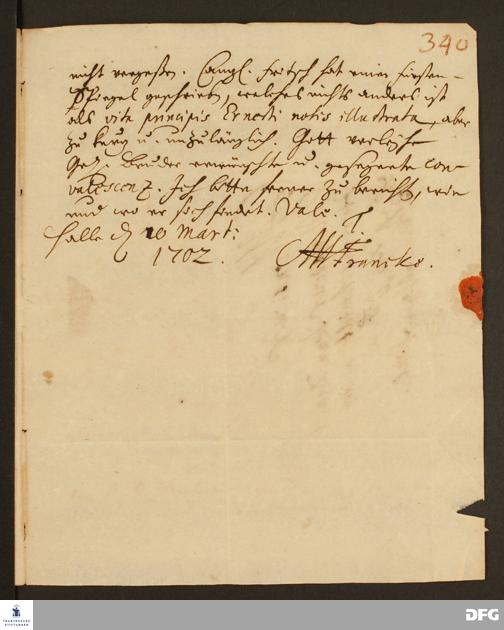 340
nicht vergeßen. Cantzl. Fritsch hat einen Fürsten-
Spiegel geschrieben, welches nichts anders ist
als vita principis Ernesti notis illustrata, aber
zu kurtz u. unzulänglich. Gott verleyhe
Bruder erwünschte u. gesegnete Con-
valescenz. Ich bitte ferner zu berichten, wie
und wo er sich findet. Vale.
T.
Halle d 10 Mart:
1702.
AHFrancke.
FRANCKESCHE
STIFTUNGEN
DFG